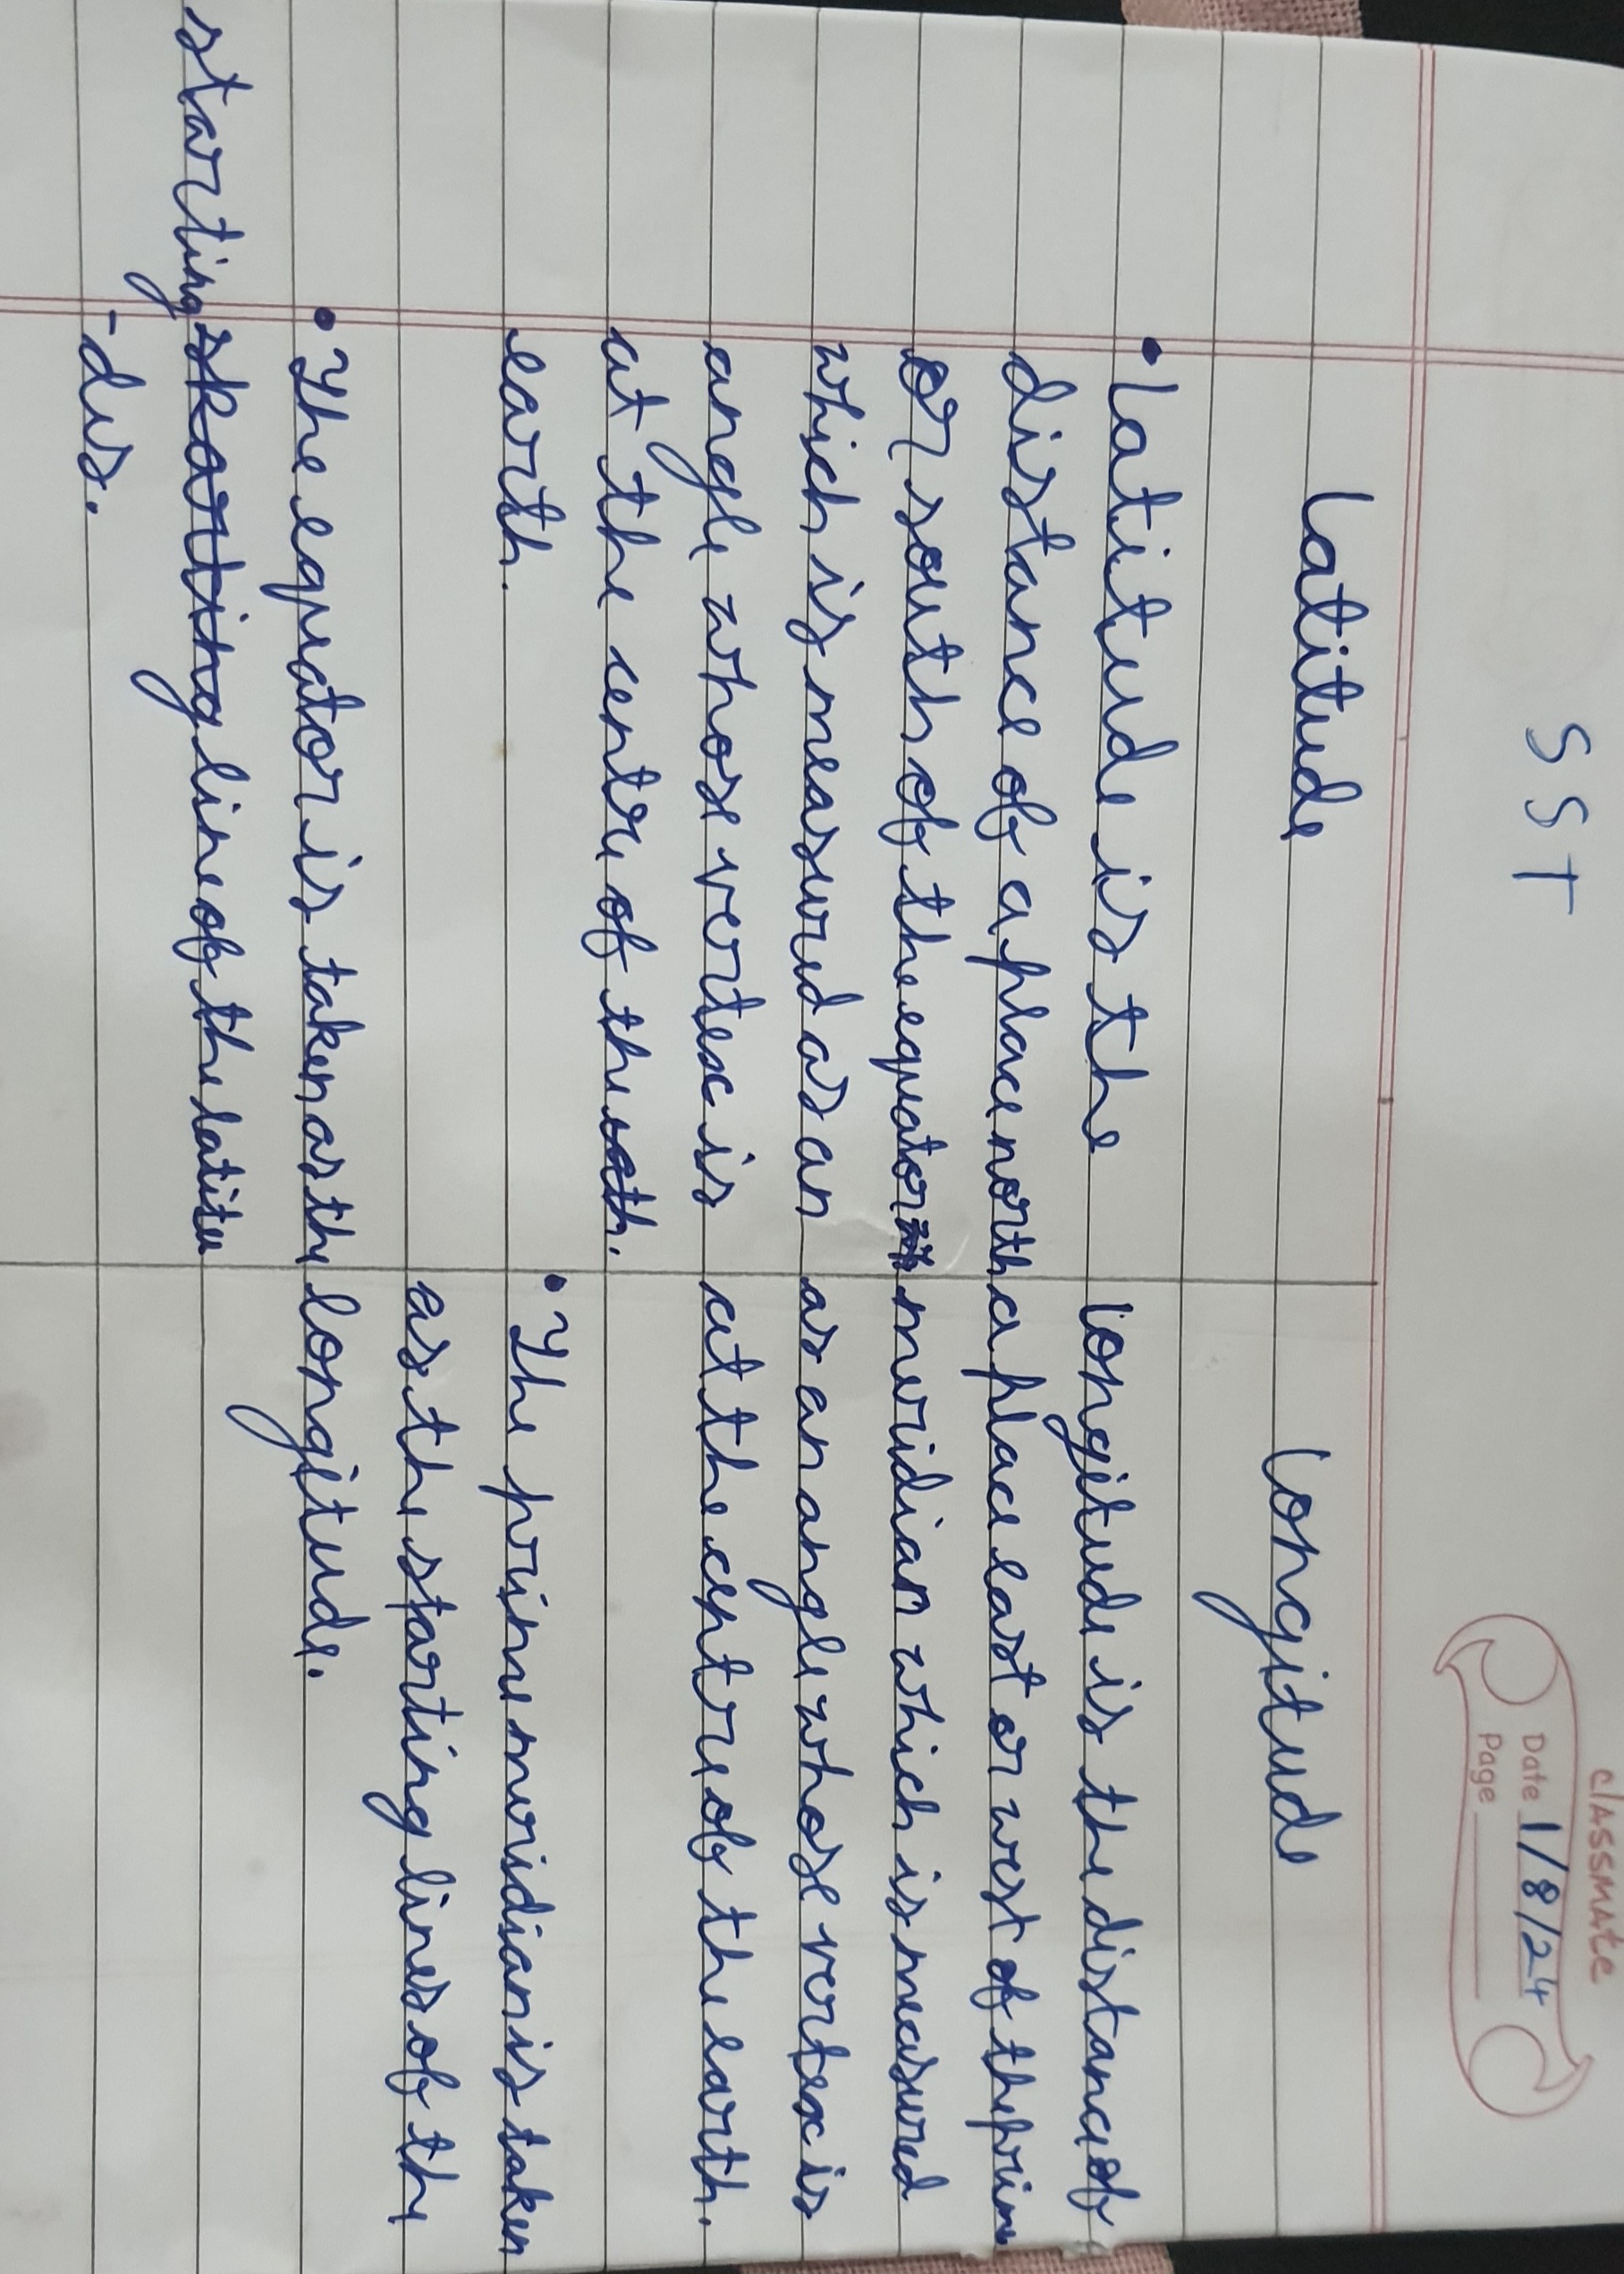 classmate
Date 1/8/24
Page
SST
Latitude
• Latitude is the
distance of a place north
or south of the equator
which is measured as an
angle whose vertex is
at the centre of the
earth.
• The equator is taken as the
starting line of the latitu
-des.
Longitude
Longitude is the distance of
a place east or west of the prime
meridian which is measured
as an angle whose vertex is
at the centre of the earth.
• The prime meridian is taken
as the starting lines of the
longitude.